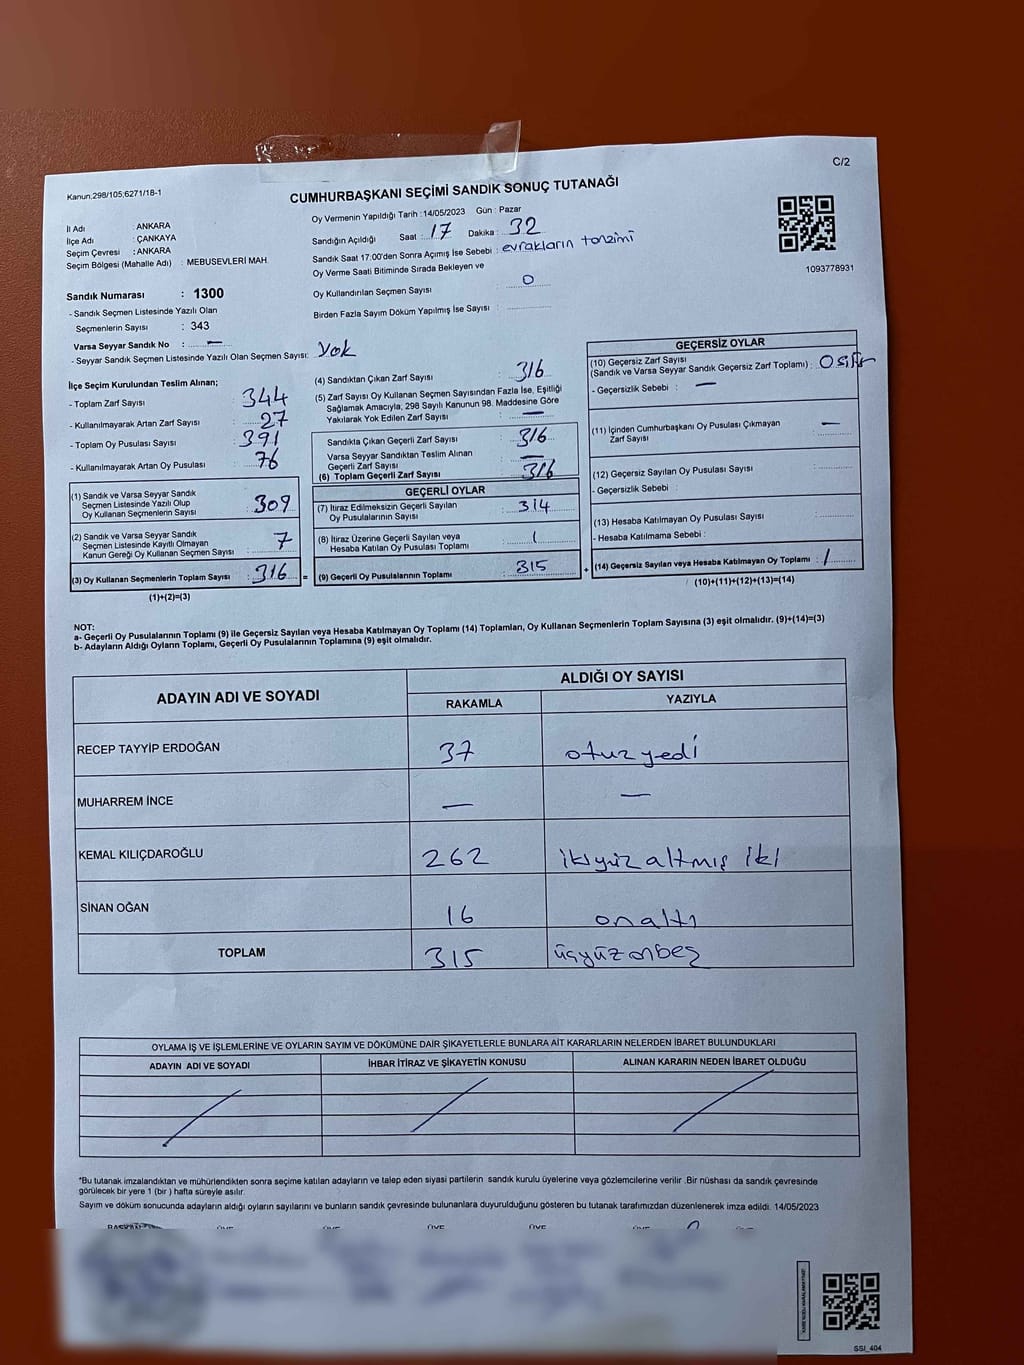 C/2
Kanun,298/105;6271/18-1
CUMHURBAŞKANI SEÇİMİ SANDIK SONUÇ TUTANAĞI
İl Adı : ANKARA
İlçe Adı : ÇANKAYA
Seçim Çevresi : ANKARA
Seçim Bölgesi (Mahalle Adı) : MEBUSEVLERİ MAH.
Oy Vermenin Yapıldığı Tarih :14/05/2023 Gün : Pazar
Sandığın Açıldığı Saat : 17 Dakika : 32
Sandık Saat 17:00'den Sonra Açımış İse Sebebi : evrakların tanzimi
Oy Verme Saati Bitiminde Sırada Bekleyen ve
Oy Kullandırılan Seçmen Sayısı : 0
Birden Fazla Sayım Döküm Yapılmış İse Sayısı :
1093778931
Sandık Numarası : 1300
- Sandık Seçmen Listesinde Yazılı Olan
Seçmenlerin Sayısı : 343
Varsa Seyyar Sandık No : —
- Seyyar Sandık Seçmen Listesinde Yazılı Olan Seçmen Sayısı: Yok
İlçe Seçim Kurulundan Teslim Alınan;
- Toplam Zarf Sayısı : 344
- Kullanılmayarak Artan Zarf Sayısı : 27
- Toplam Oy Pusulası Sayısı : 391
- Kullanılmayarak Artan Oy Pusulası : 76
(1) Sandık ve Varsa Seyyar Sandık
Seçmen Listesinde Yazılı Olup
Oy Kullanan Seçmenlerin Sayısı : 309
(2) Sandık ve Varsa Seyyar Sandık
Seçmen Listesinde Kayıtlı Olmayan
Kanun Gereği Oy Kullanan Seçmen Sayısı : 7
(3) Oy Kullanan Seçmenlerin Toplam Sayısı : 316 =
(1)+(2)=(3)
(4) Sandıktan Çıkan Zarf Sayısı : 316
(5) Zarf Sayısı Oy Kullanan Seçmen Sayısından Fazla İse, Eşitliği
Sağlamak Amacıyla, 298 Sayılı Kanunun 98. Maddesine Göre
Yakılarak Yok Edilen Zarf Sayısı : —
Sandıkla Çıkan Geçerli Zarf Sayısı : 316
Varsa Seyyar Sandıktan Teslim Alınan
Geçerli Zarf Sayısı : —
(6) Toplam Geçerli Zarf Sayısı : 316
GEÇERLİ OYLAR
(7) İtiraz Edilmeksizin Geçerli Sayılan
Oy Pusulalarının Sayısı : 314
(8) İtiraz Üzerine Geçerli Sayılan veya
Hesaba Katılan Oy Pusulası Toplamı : 1
(9) Geçerli Oy Pusulalarının Toplamı : 315 +
GEÇERSİZ OYLAR
(10) Geçersiz Zarf Sayısı
(Sandık ve Varsa Seyyar Sandık Geçersiz Zarf Toplamı) : 0 sıfır
- Geçersizlik Sebebi : —
(11) İçinden Cumhurbaşkanı Oy Pusulası Çıkmayan
Zarf Sayısı : —
(12) Geçersiz Sayılan Oy Pusulası Sayısı :
- Geçersizlik Sebebi :
(13) Hesaba Katılmayan Oy Pusulası Sayısı :
- Hesaba Katılmama Sebebi :
(14) Geçersiz Sayılan veya Hesaba Katılmayan Oy Toplamı : 1
(10)+(11)+(12)+(13)=(14)
NOT:
a- Geçerli Oy Pusulalarının Toplamı (9) ile Geçersiz Sayılan veya Hesaba Katılmayan Oy Toplamı (14) Toplamları, Oy Kullanan Seçmenlerin Toplam Sayısına (3) eşit olmalıdır. (9)+(14)=(3)
b- Adayların Aldığı Oyların Toplamı, Geçerli Oy Pusulalarının Toplamına (9) eşit olmalıdır.
ADAYIN ADI VE SOYADI
ALDIĞI OY SAYISI
RAKAMLA YAZIYLA
RECEP TAYYİP ERDOĞAN 37 otuz yedi
MUHARREM İNCE — —
KEMAL KILIÇDAROĞLU 262 ikiyüz altmış iki
SİNAN OĞAN 16 onaltı
TOPLAM 315 üçyüz onbeş
OYLAMA İŞ VE İŞLEMLERİNE VE OYLARIN SAYIM VE DÖKÜMÜNE DAİR ŞİKAYETLERLE BUNLARA AİT KARARLARIN NELERDEN İBARET BULUNDUKLARI
ADAYIN ADI VE SOYADI İHBAR İTİRAZ VE ŞİKAYETİN KONUSU ALINAN KARARIN NEDEN İBARET OLDUĞU
*Bu tutanak imzalandıktan ve mühürlendikten sonra seçime katılan adayların ve talep eden siyasi partilerin sandık kurulu üyelerine veya gözlemcilerine verilir .Bir nüshası da sandık çevresinde
görülecek bir yere 1 (bir ) hafta süreyle asılır.
Sayım ve döküm sonucunda adayların aldığı oyların sayılarını ve bunların sandık çevresinde bulunanlara duyurulduğunu gösteren bu tutanak tarafımızdan düzenlenerek imza edildi. 14/05/2023
ÜYE ÜYE ÜYE ÜYE ÜYE
SSİ_404